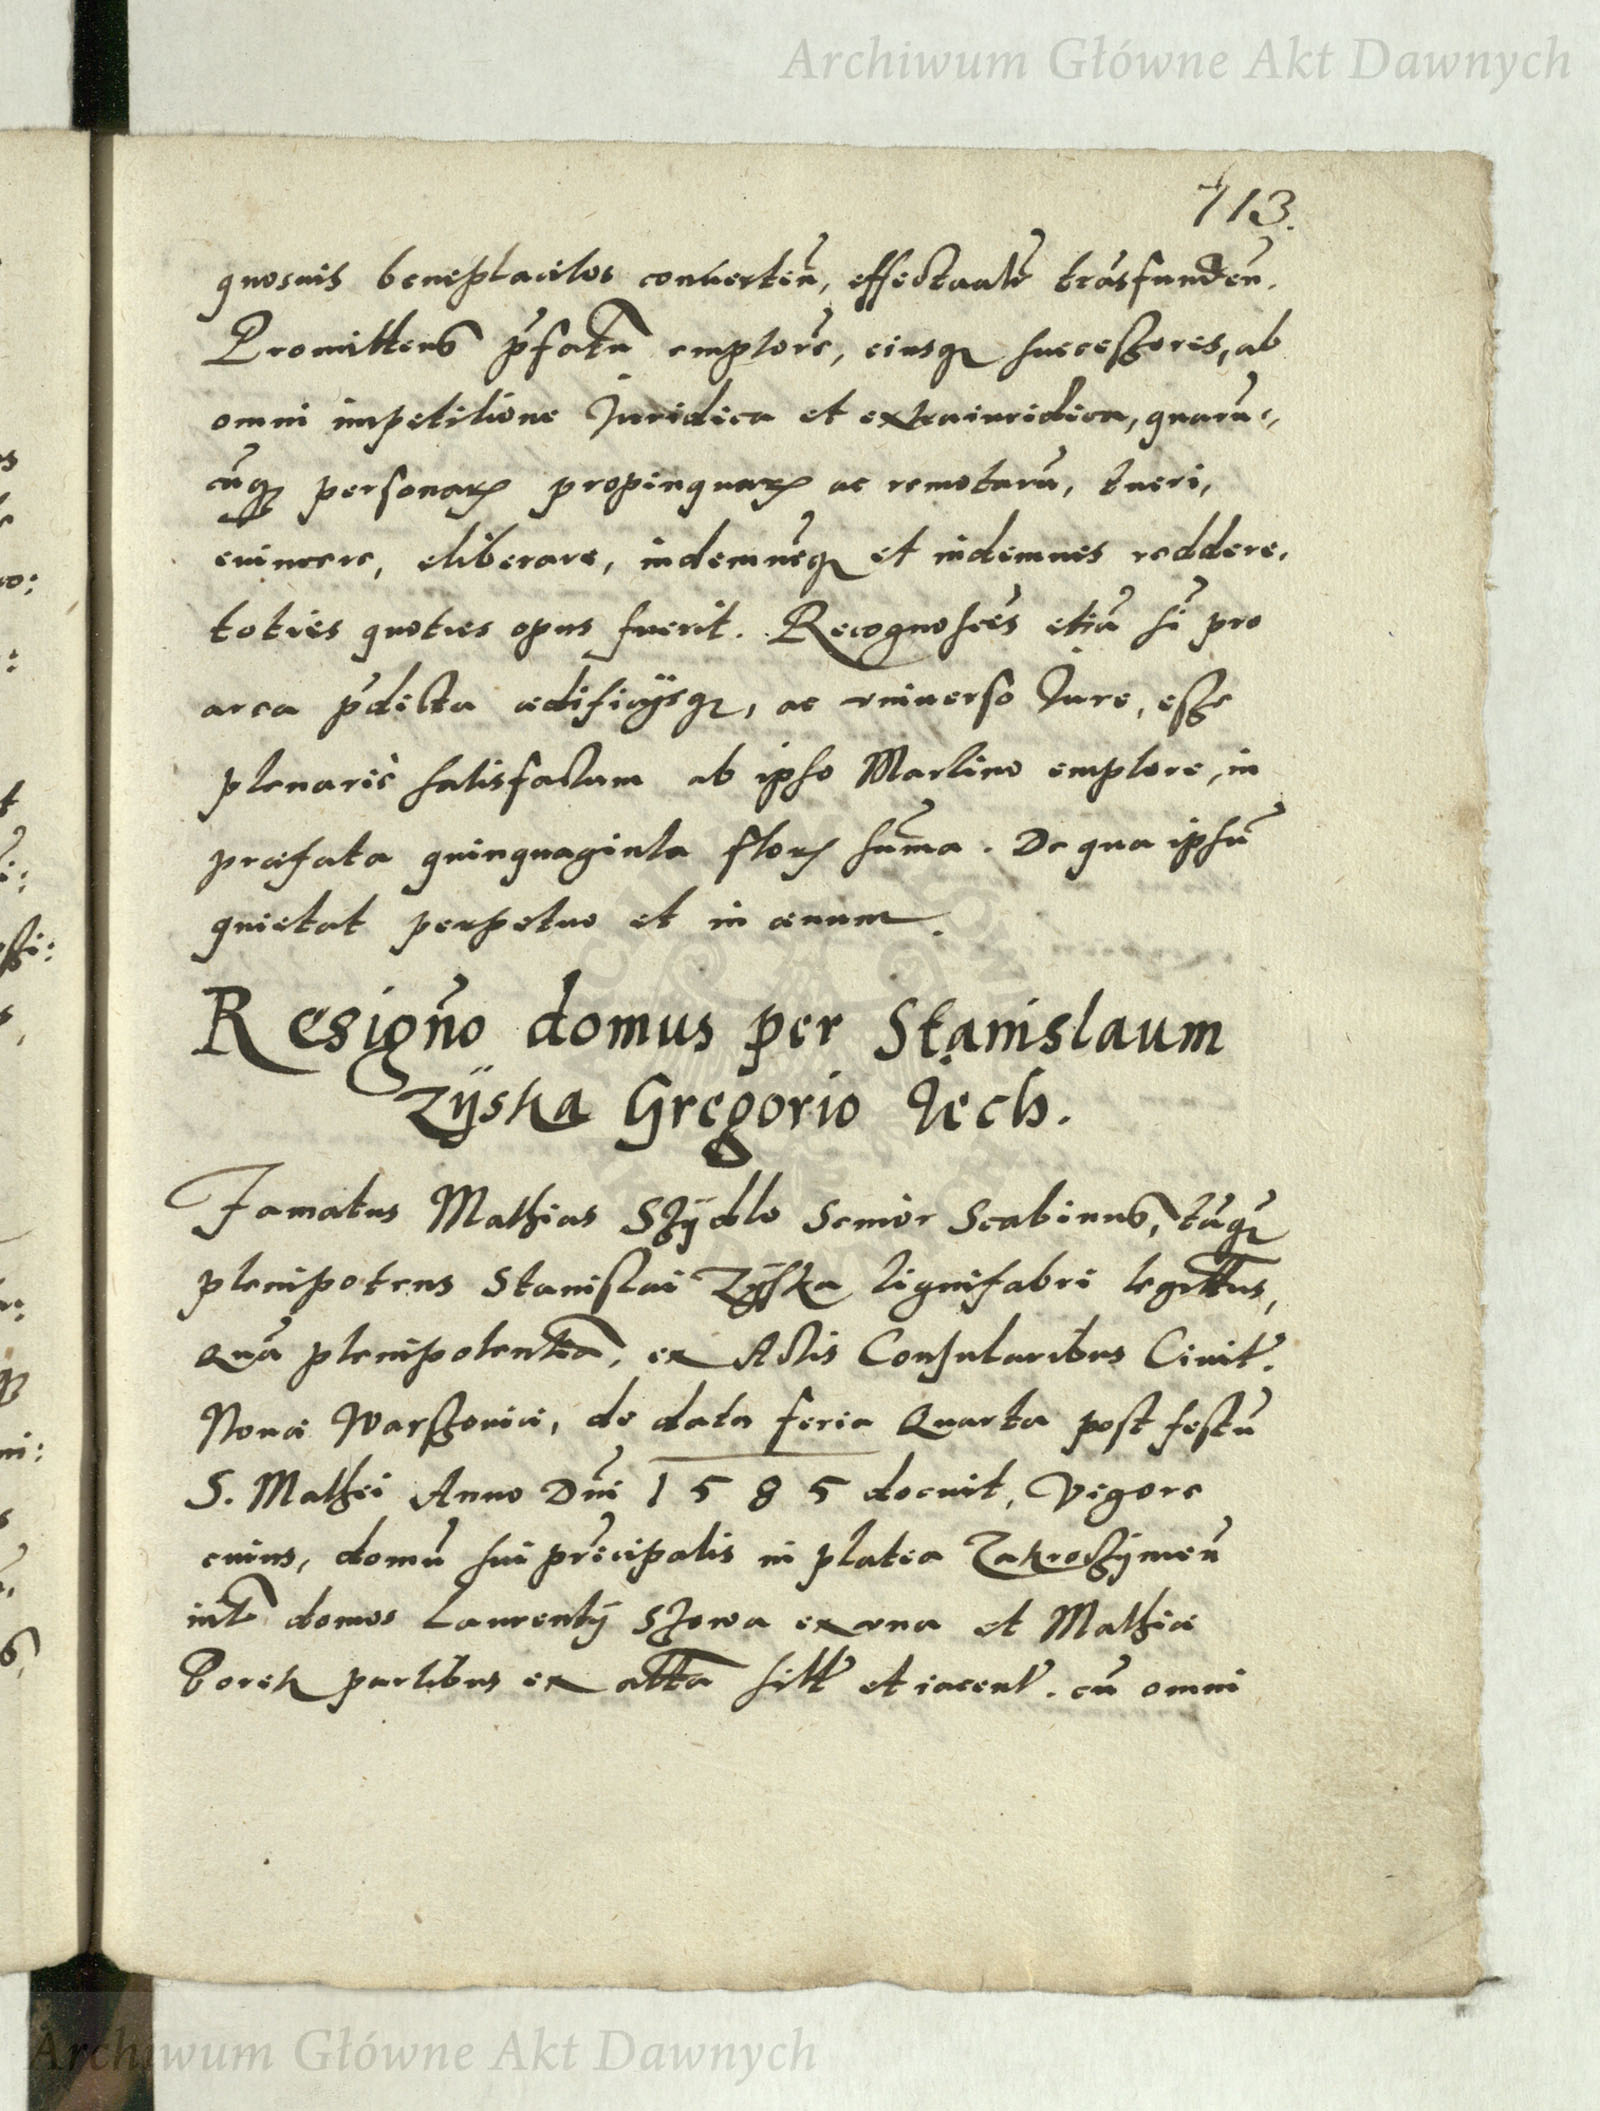 Archiwum Główne Akt Dawnych
713.
quosuis beneplacitos conuerten̄, effectualr̄ trāsfundēn.
Promittens p̄fatū emptorē, eiusqꝫ successores, ab
omni impetitione Juridica et extraiuridica, quarū-
cūqꝫ personaꝝ propinquaꝝ ac remotarū, tueri,
euincere, eliberare, indemnēqꝫ et indemnes reddere,
toties quoties opus fuerit. Recognoscēs etiā s̄i pro
area p̄dicta ædificijsqꝫ, ac vniuerso Jure, esse
plenariè satisfactum ab ipso Martino emptore, in
præfata quinquaginta floꝝ sūma. De qua ipsū
quietat perpetuo et in æuum.
Resign̄o domus per Stanislaum
Zÿska Gregorio Jech.
Famatus Mathias Szÿdlo Senior Scabinus, tāqꝫ
plenipotens Stanislai Zÿska lignifabri legittus,
Quā plenipotentiā, ex Actis Consularibus Ciuit̄.
Nouæ Warszouiæ, de data feria Quarta post festū
S. Mathei Anno Dn̄i 1585 docuit, Vigore
cuius, domū sui prēcipalis in platea Zakroczÿmen̄
int̄ domos Laurentÿ Szowa ex vna et Mathiæ
Borek partibus ex altā sitt̄ et iacent̄. cū omni
Archiwum Główne Akt Dawnych